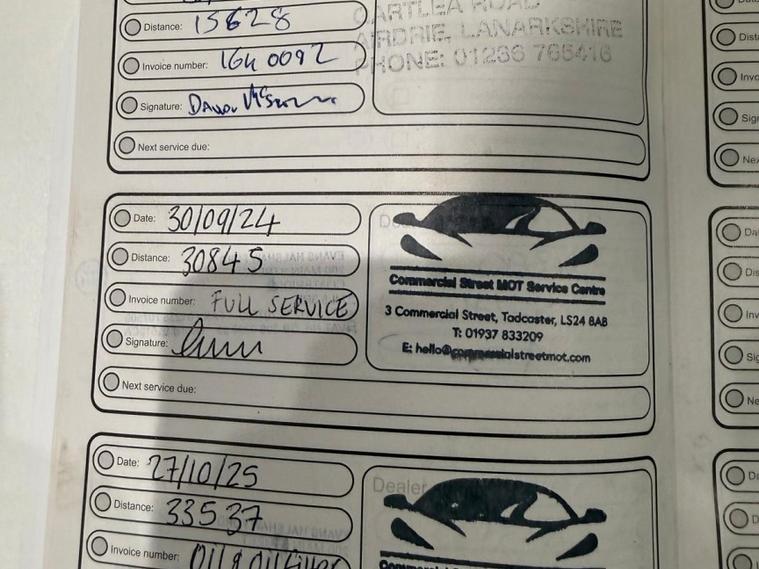 Distance: 15628
CARTLEA ROAD
AIRDRIE, LANARKSHIRE
Invoice number: 164 0092
PHONE: 01236 765416
Signature:
Next service due:
Date: 30/09/24
Dea
Distance: 30845
Commercial Street MOT Service Centre
Invoice number: FULL SERVICE
3 Commercial Street, Tadcaster, LS24 8AB
T: 01937 833209
Signature:
E: hello@commercialstreetmot.com
Next service due:
Date: 27/10/25
Dealer
Distance: 33537
Invoice number: Oil & Oil filter
Dist
Invo
Sig
Ne
Da
Dis
Inv
Sig
Ne
D
D
I